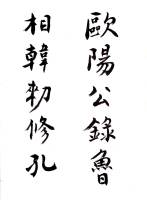 歐陽公錄魯
相韓勑修孔